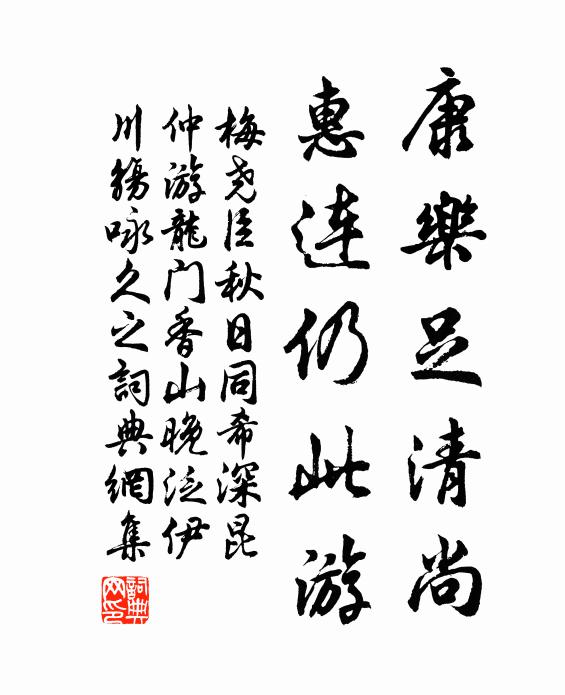 康樂足清尚
惠连仍此游
梅尧臣秋日同希深昆
仲游龍门香山晚泛伊
川觞咏久之詞典網集
詞典网印